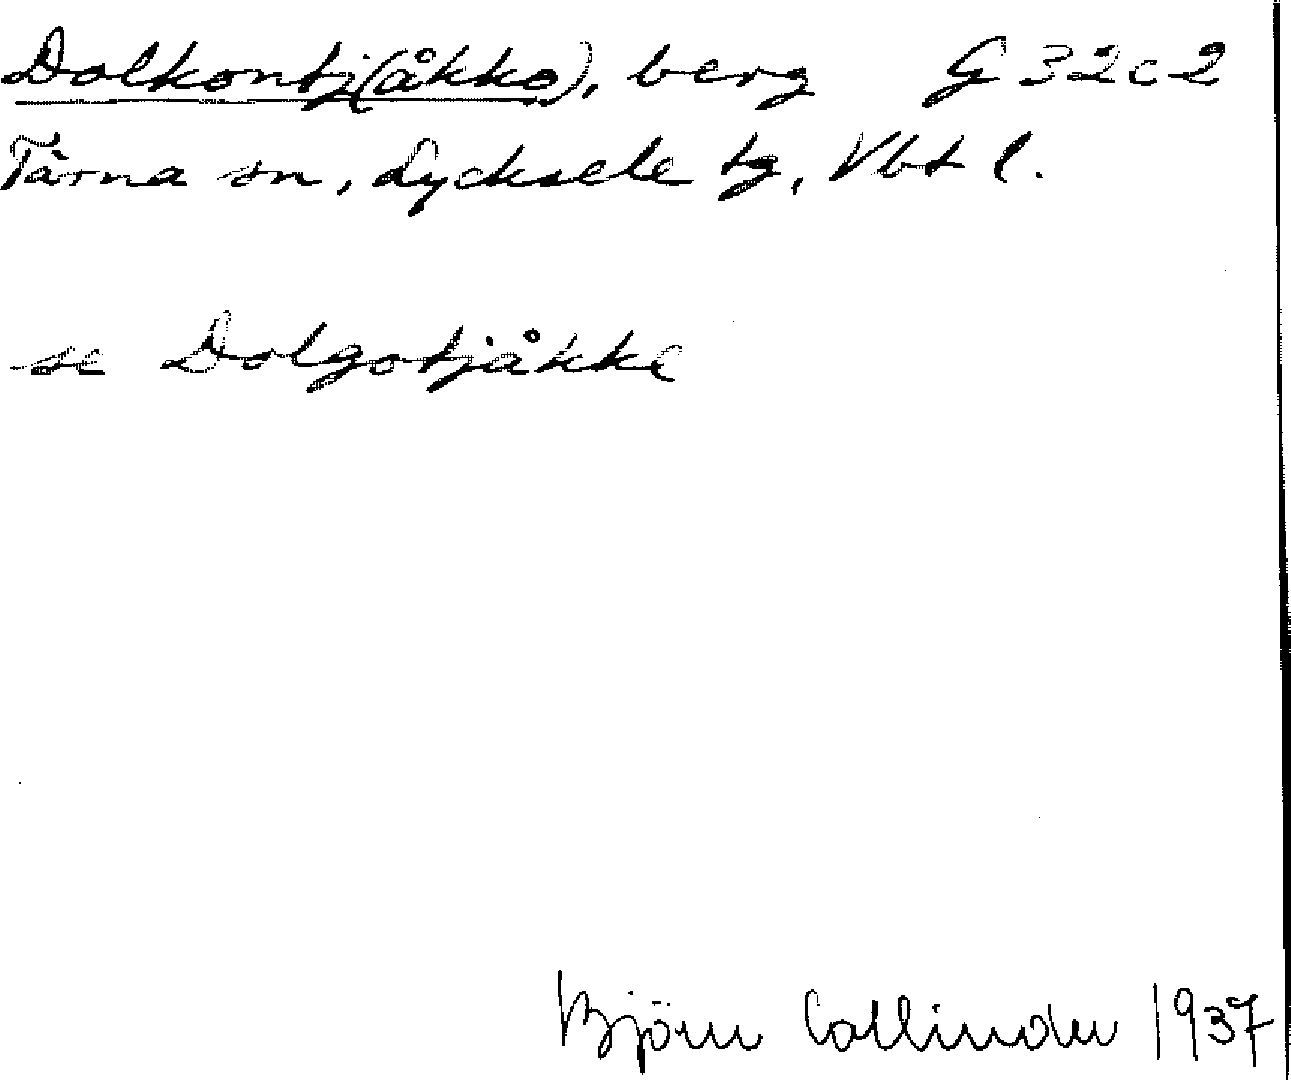 Dolkontj(åkko), berg G 32c2
Tärna sn, Lycksele tg, Vbt l.
se Dolgotjåkke
Björn Collinder 1937